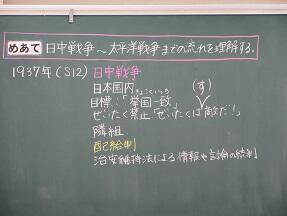 めあて 日中戦争～太平洋戦争までの流れを理解する。
1937年(S12) 日中戦争
日本国内
きょこくいっち
(す)
目標:「挙国一致」
ぜいたく禁止「ぜいたくは敵だ!」
隣組
配給制
治安維持法による情報や言論の統制